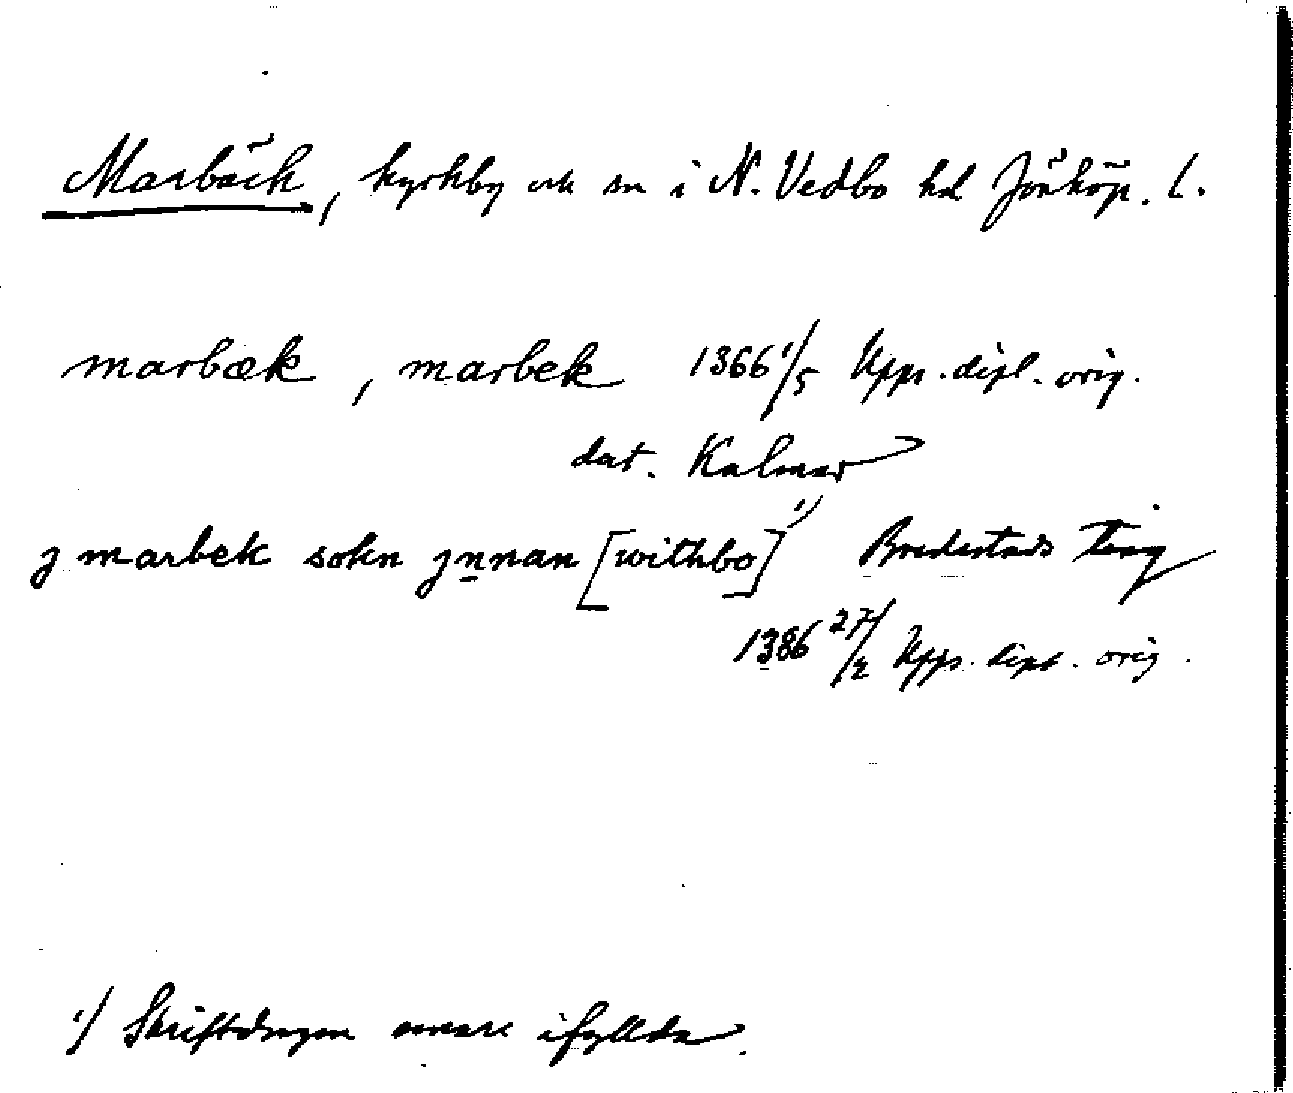 Marbäck, kyrkby och sn i N. Vedbo hd Jönköp. l.
marbæk, marbek 1366 1/5 Upps. dipl. orig.
dat. Kalmar
j marbek sokn jnnan [withbo] 1) Bredestads Ting
1386 27/2 Upps. dipl. orig.
1) Skriftdragen senare ifyllda.